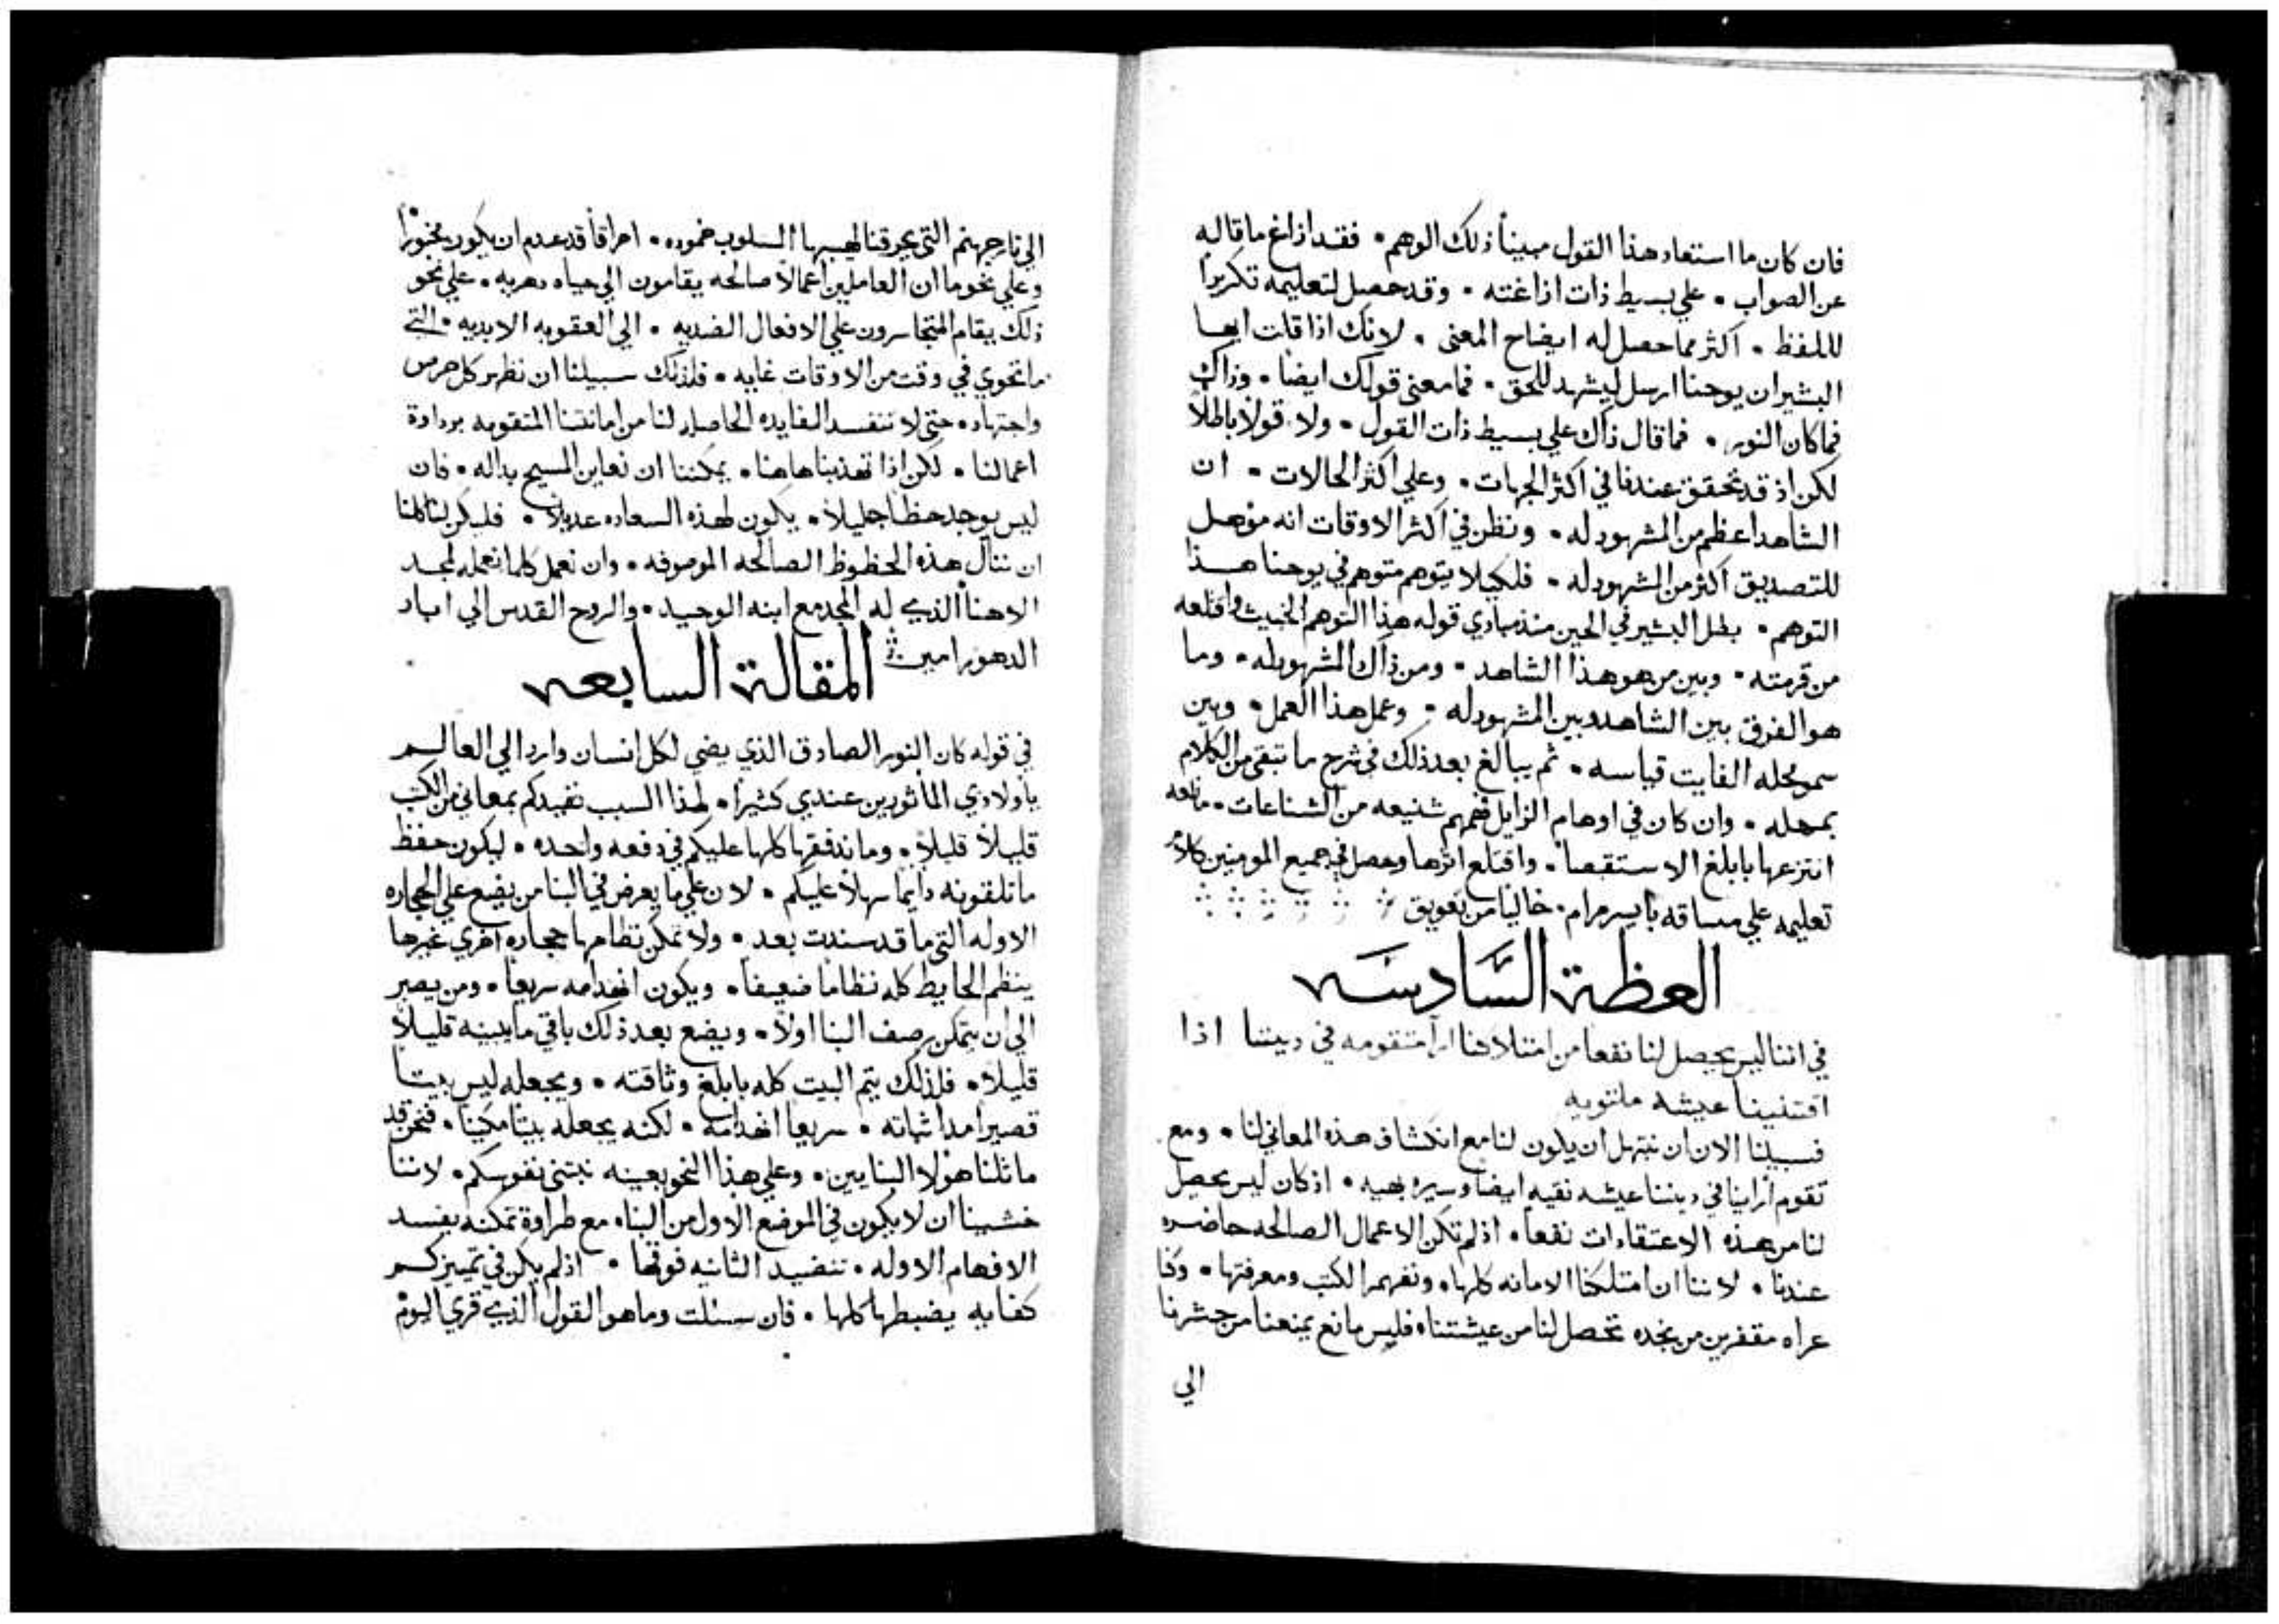 فان كان ما استعاد هذا القول مبيناً ذلك الوهم • فقد ازاغ ما قاله
عن الصواب • علي بسيط ذات ازاغته • وقد حصل لتعليمه تكريراً
للفظ • اكثر مما حصل له ايضاح المعني • لانك اذا قلت ايها
البشير ان يوحنا ارسل ليشهد للحق • فما معني قولك ايضا • وذاك
فما كان النور • فما قال ذاك علي بسيط ذات القول • ولا قولاً باطلاً
لكن اذ قد تحقق عندنا في اكثر الجهات • وعلي اكثر الحالات • ان
الشاهد اعظم من المشهود له • ونظن في اكثر الاوقات انه موهل
للتصديق اكثر من المشهود له • فلكيلا يتوهم متوهم في يوحنا هذا
التوهم • بطل البشير في الحين منذ مبادي قوله هذا التوهم الخبيث واقلعه
من قرمته • وبين من هو هذا الشاهد • ومن ذاك المشهود له • وما
هو الفرق بين الشاهد وبين المشهود له • وعمل هذا العمل • وبين
سمو محله الفايت قياسه • ثم يبالغ بعد ذلك في شرح ما تبقي من الكلام
بمحله • وان كان في اوهام الزايل فهمهم شنيعه من الشناعات •
انتزعها بابلغ الاستقصا • واقتلع اثرها وحصل في جميع المومنين كلام
تعليمه علي مساقه بايسر مرام • خاليا من تعويق
العظة السَّادسَه
في اننا ليس يحصل لنا نفعا من امتلاكنا ارآ متقومه في ديننا اذا
اقتنينا عيشه ملتويه
فسبيلنا الان ان نبتهل ان يكون لنا مع انكشاف هذه المعاني لنا • ومع
تقوم ارآينا في ديننا عيشه نقيه ايضا وسيره بهيه • اذ كان ليس يحصل
لنا من هذه الاعتقادات نفعا • اذ لم تكن الاعمال الصالحه حاضره
عندنا • لاننا ان امتلكنا الامانه كلها • وتفهم الكتب ومعرفتها • وكنا
عراه مقفرين من نجده تحصل لنا من عيشتنا • فليس مانع يمنعنا من حشرنا
الي
الي نار جهنم التي يحرقنا لهيبها المسلوب خموده • احراقاً قد عدم ان يكون مخبوزاً
وعلي نحو ما ان العاملين اعمالاً صالحه يقامون الي حياه دهريه • علي نحو
ذلك يقام المتجاسرون علي الافعال الضديه • الي العقوبه الابديه • التي
ما تحوي في وقت من الاوقات غايه • فلذلك سبيلنا ان نظهر كل حرص
واجتهاد • حتي لا نفسد الفايده الحاصله لنا من امانتنا المتقومه برداوة
اعمالنا • لكن اذا تهذبنا هاهنا • يمكننا ان نعاين المسيح بداله • فان
ليس يوجد حظا جليلا • يكون لهذه السعاده عديلاً • فليكن لنا كلنا
ان ننال هذه الحظوظ الصالحه الموصوفه • وان نعمل كلما نعمله لمجد
الاهنا الذي له المجد مع ابنه الوحيد • والروح القدس الي اباد
الدهور امين
المقالة السابعه
في قوله كان النور الصادق الذي يضي لكل انسان وارد الي العالم
يا ولادي الماثورين عندي كثيراً • لهذا السبب نفيدكم بمعاني من الكتب
قليلاً قليلاً • وما ندفقها كلها عليكم في دفعه واحده • ليكون حفظ
ما تلقونه دايما سهلاً عليكم • لان علي ما يعرض في البنا من يضع علي الحجاره
الاوله التي ما قد سندت بعد • ولا تمكن نظامها حجاره اخري غيرها
ينظم الحايط كله نظاما ضعيفا • ويكون انهدامه سريعا • ومن يصبر
الي ان يتمكن رصف البنا اولاً • ويضع بعد ذلك باقي ما يبنيه قليلاً
قليلاً • فلذلك يتم البيت كله بابلغ وثاقته • ويجعله ليس بيتا
قصيرا مدا ثباته • سريعا انهدامه • لكنه يجعله بيتا مكينا • فنحن قد
ماثلنا هولا البنايين • وعلي هذا النحو بعينه نبتني نفوسكم • لاننا
خشينا ان لا يكون في الموضع الاول من البنا • مع طراوة تمكنه يفسد
الافهام الاوله • تنضيد الثانيه فوقها • اذ لم يكن في تمييزكم
كفايه يضبطها كلها • فان سئلت وما هو القول الذي قري اليوم